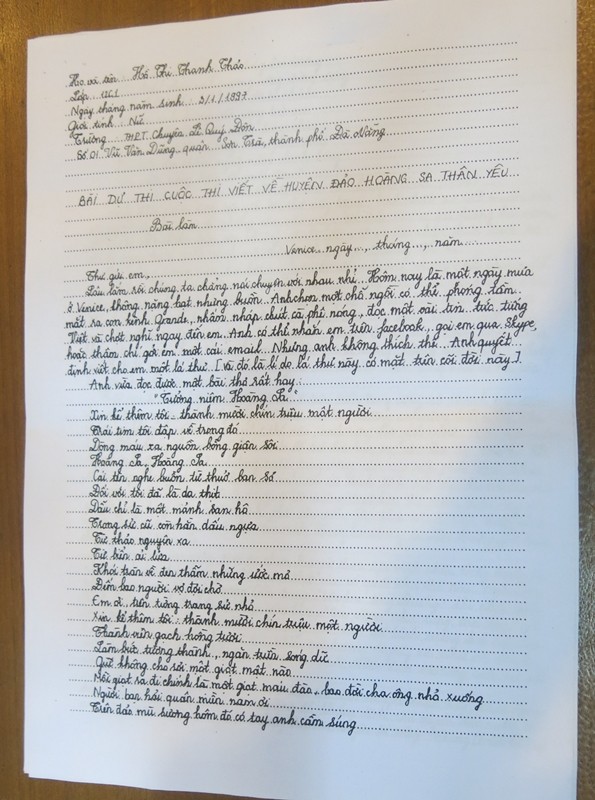 Họ và tên: Hồ Thị Thanh Thảo
Lớp: 12C1
Ngày tháng năm sinh: 3/1/1997
Giới tính: Nữ
Trường THPT Chuyên Lê Quý Đôn
Số 01 Vũ Văn Dũng, quận Sơn Trà, thành phố Đà Nẵng
BÀI DỰ THI CUỘC THI VIẾT VỀ HUYỆN ĐẢO HOÀNG SA THÂN YÊU
Bài làm
Venice, ngày..., tháng..., năm
Thư gửi em,
Lâu lắm rồi chúng ta chẳng nói chuyện với nhau nhỉ. Hôm nay là một ngày mưa
ở Venice, không nặng hạt nhưng buồn. Anh chọn một chỗ ngồi có thể phóng tầm
mắt ra con kênh Grande, nhâm nháp chút cà phê nóng, đọc một vài tin tức tiếng
Việt và chợt nghĩ ngay đến em. Anh có thể nhắn em trên facebook, gọi em qua Skype,
hoặc thậm chí gởi em một cái email. Nhưng anh không thích thế. Anh quyết
định viết cho em một lá thư. [Và đó là lí do lá thư này có mặt trên cõi đời này.]
Anh vừa đọc được một bài thơ rất hay:
"Tưởng niệm Hoàng Sa"
Xin kể thêm tôi - thành mười chín triệu một người
Trái tim tôi đập về trong đó
Dòng máu xa nguồn bỗng giận sôi
Hoàng Sa, Hoàng Sa
Cái tên nghe buồn từ thuở ban sơ
Đối với tôi đã là da thịt
Dẫu chỉ là một mảnh san hô
Trong sử cũ còn hằn dấu ngựa
Từ thảo nguyên xa
Từ biển ải lửa
Khói trận về đen thẫm những ước mơ
Đến bao người vợ đợi chờ
Em ơi, trên từng trang sử nhỏ
Xin kể thêm tôi: thành mười chín triệu một người
Thành viên gạch hồng tươi
Làm bức tường thành, ngăn trừa sóng dữ
Quê không cho rơi một giọt mật nào
Mỗi giọt sa đi chính là một giọt máu đào, bao đời cha ông nhỏ xuống
Người bạn hải quân miền nam ơi
Trên đảo mù sương hôm đó có tay anh cầm súng